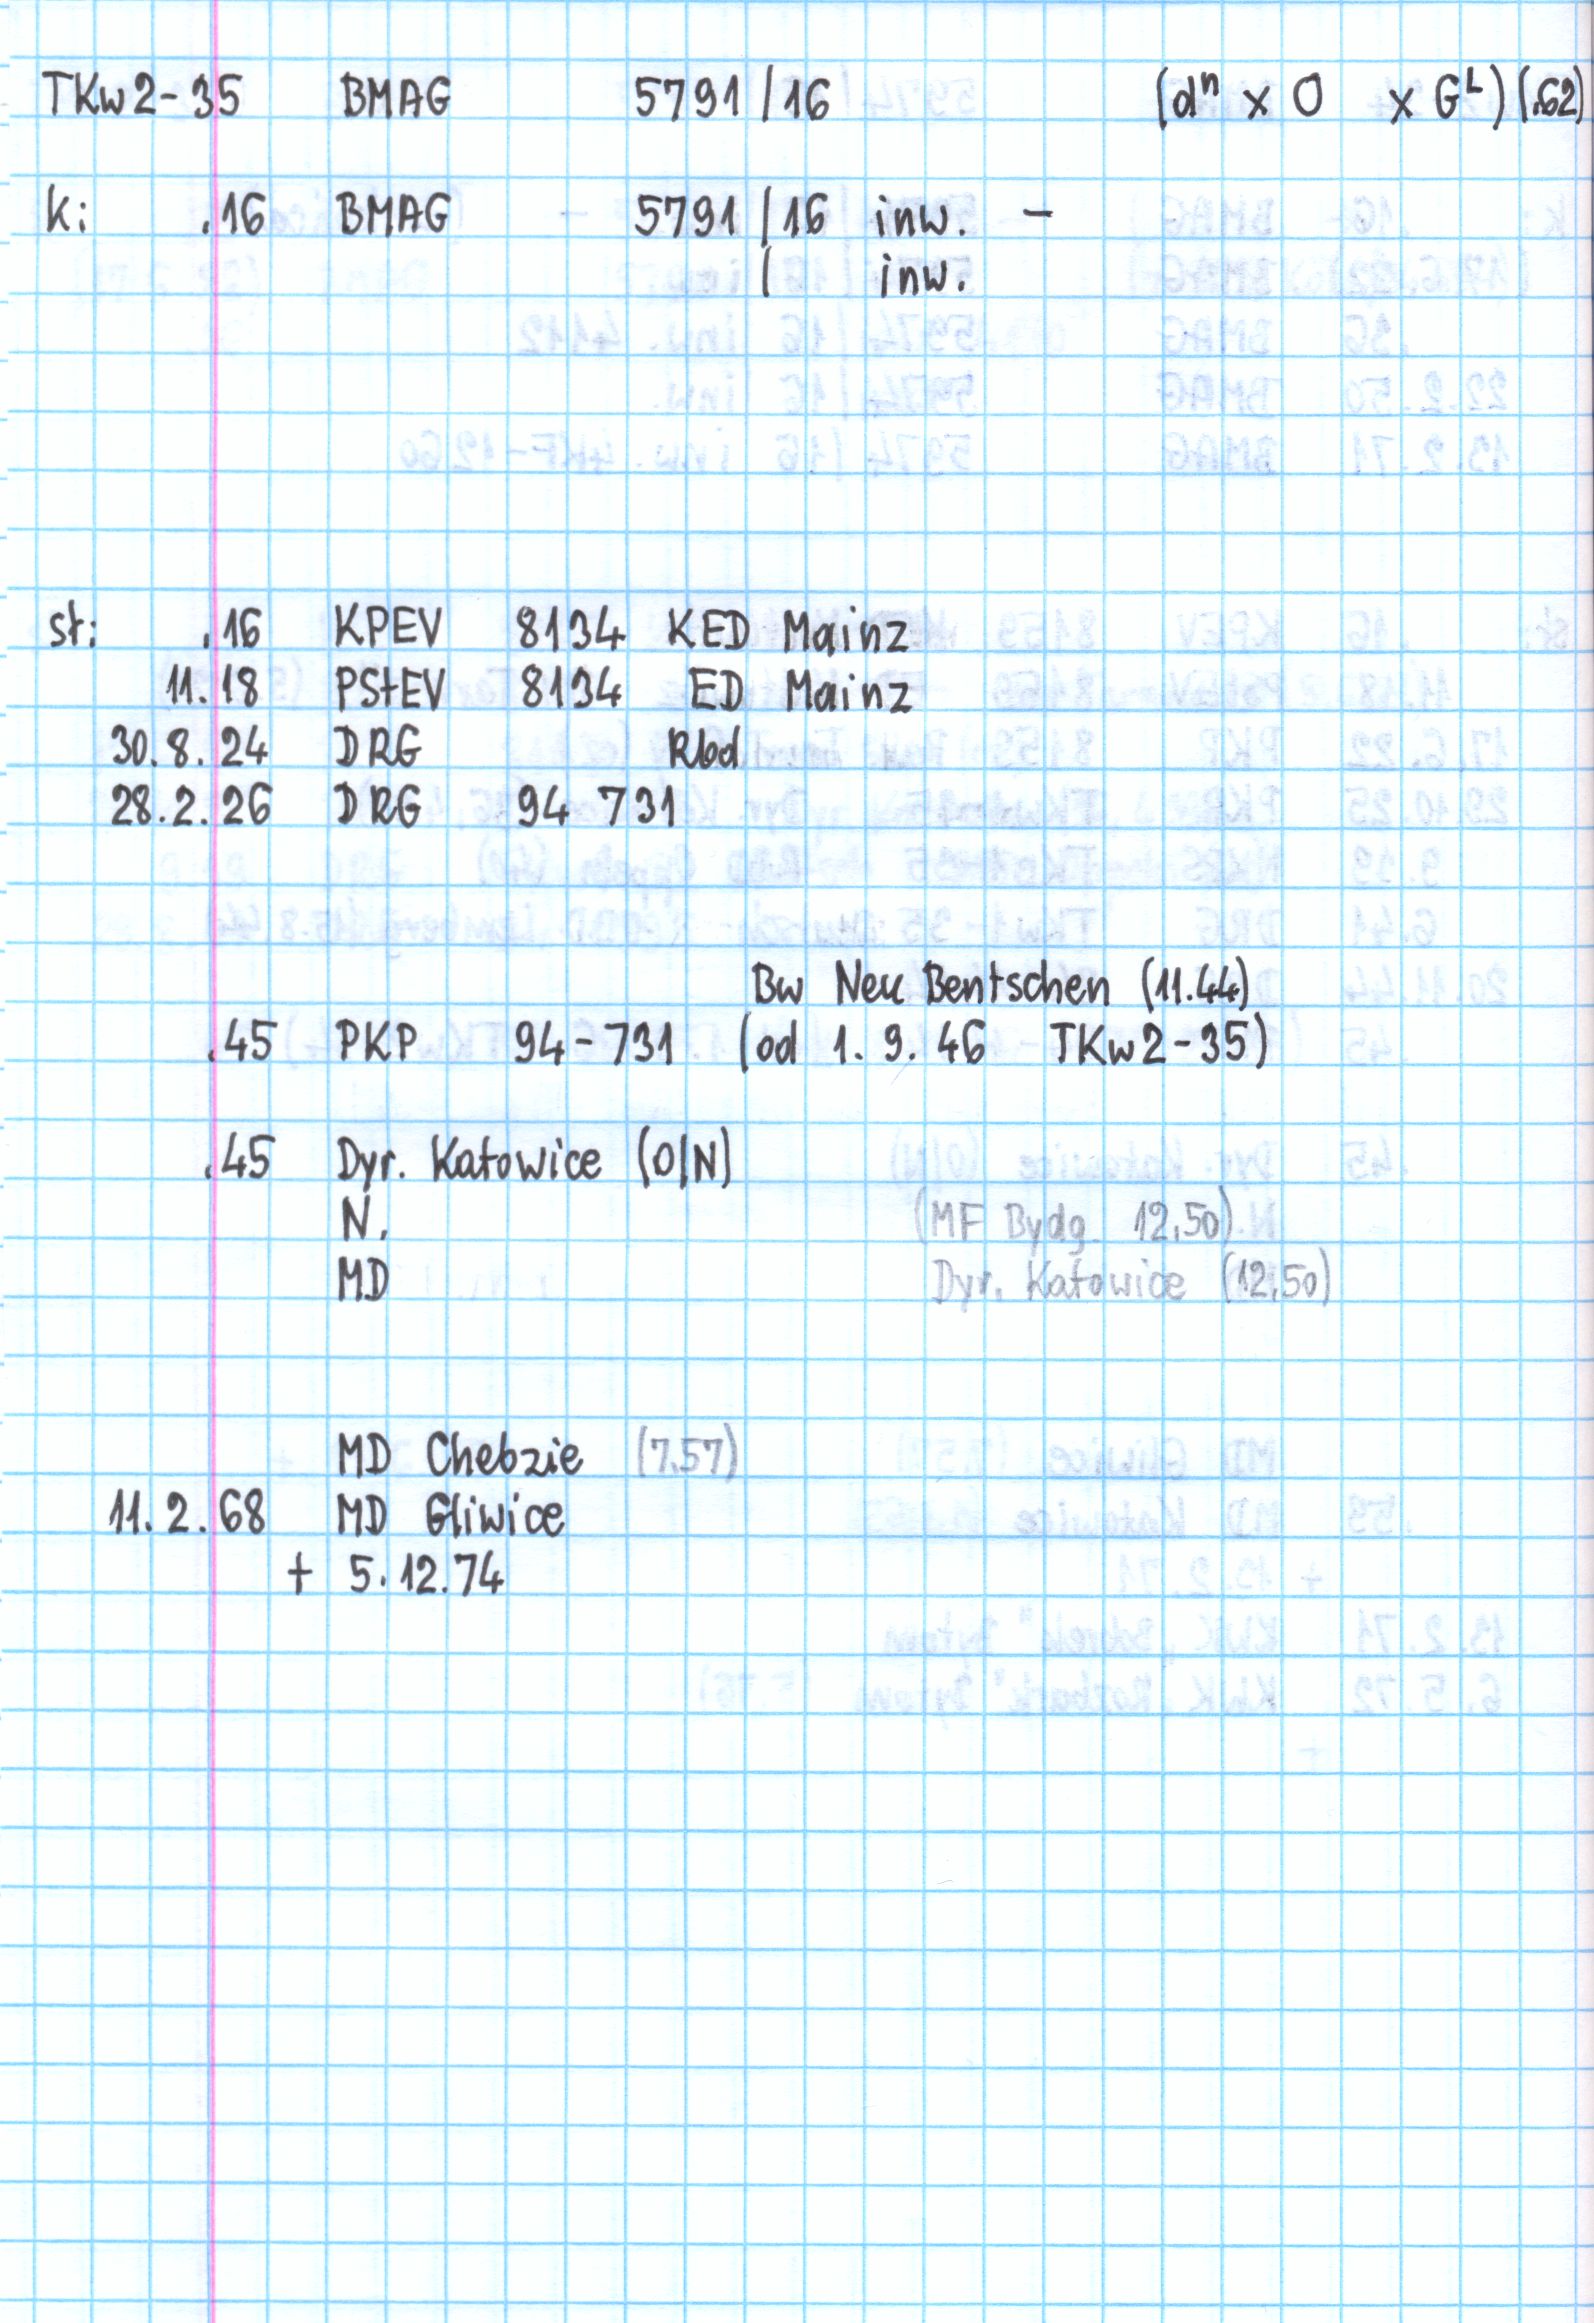 TKw2-35 BMAG 5791/16 (dⁿ x O x Gᴸ) (.62)
k: .16 BMAG 5791/16 inw. -
( inw.
st: .16 KPEV 8134 KED Mainz
11.18 PStEV 8134 ED Mainz
30.8.24 DRG Rbd
28.2.26 DRG 94 731
Bw Neu Bentschen (11.44)
.45 PKP 94-731 (od 1.9.46 TKw2-35)
.45 Dyr. Katowice (O/N)
N. (MF Bydg. 12.50)
MD Dyr. Katowice (12.50)
MD Chebzie (7.57)
11.2.68 MD Gliwice
+ 5.12.74